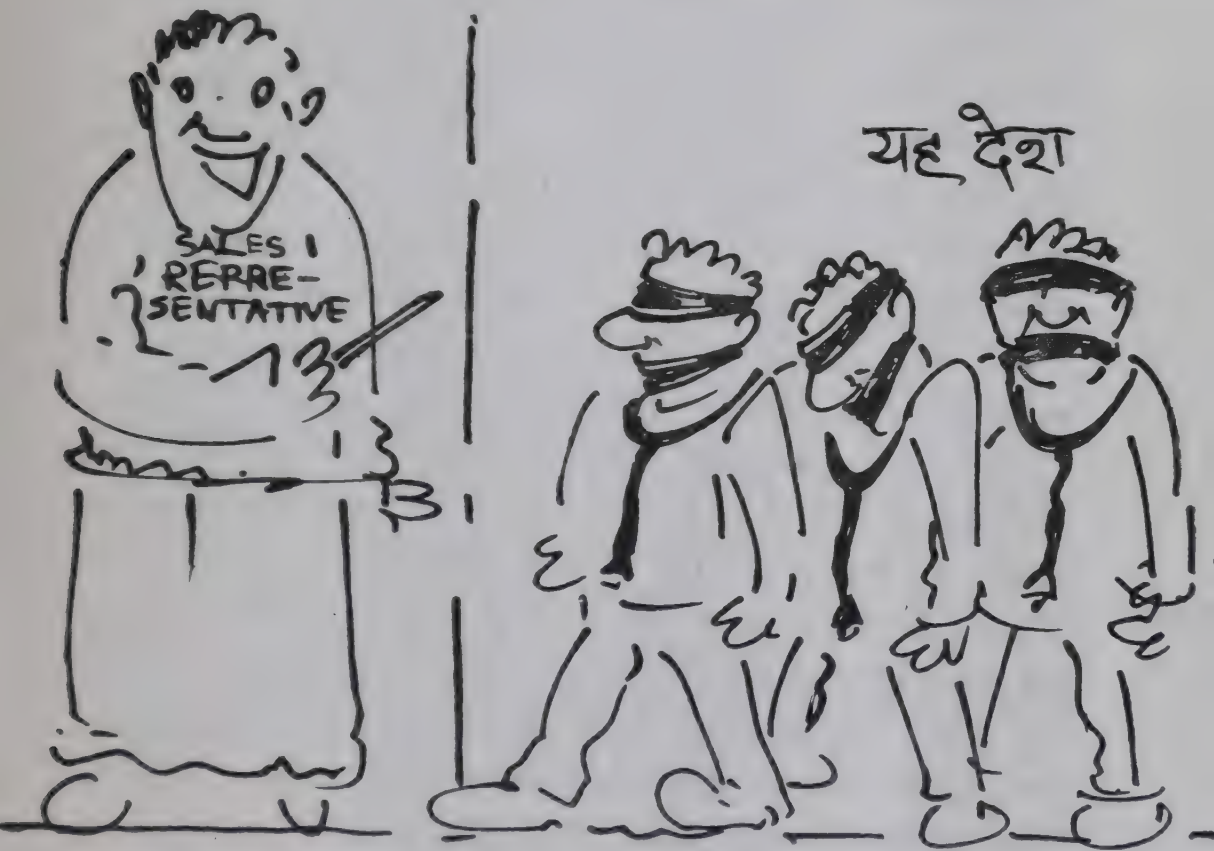 SALES
REPRE-
SENTATIVE
यह देश